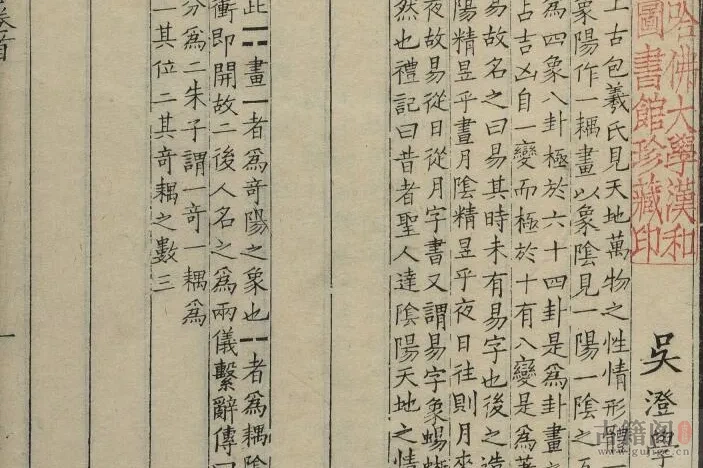 哈佛大學漢和
圖書館珍藏印
吳澄學
上古包羲氏見天地萬物之性情形體一
象陽作一耦畫以象陰見一陽一陰之
為四象八卦極於六十四卦是為卦畫
占吉凶自一變而極於十有八變是為蓍
易故名之曰易其時未有易字也後之造
陽精昱乎晝月陰精昱乎夜日往則月來
夜故易從日從月字書又謂易字象蜴蜥
然也禮記曰昔者聖人達陰陽天地之情
此⚋畫一者為奇陽之象也⚋者為耦陰
衝即開故二後人名之為兩儀繫辭傳曰
分為二朱子謂一奇一耦為
一其位二其奇耦之數三
卷首
一
古籍阁
www.gujige.cn